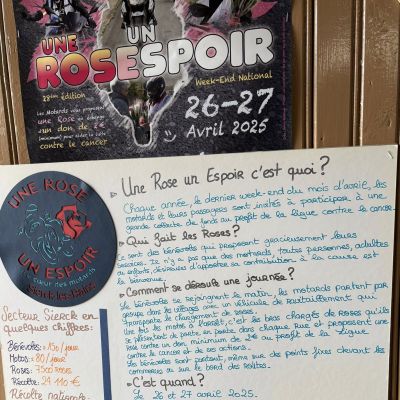 UNE UN
ROSE ESPOIR
Week-End National
28ème édition
26-27
Avril 2025
Les Motards vous proposent
une Rose en échange
d'un don de 2€
contre le cancer
UNE ROSE
UN ESPOIR
Secteur Sierck en
quelques chiffres:
Bénévoles: 150/jour
Motos: 80/jour
Roses: 7500 roses
Récolte: 24 110 €
Récolte nationale:
Une Rose un Espoir c'est quoi?
Chaque année, le dernier week-end du mois d'avril, les
motards et leurs passagers sont invités à participer à une
grande collecte de fonds au profit de la ligue contre le cancer.
Qui fait les Roses?
Ce sont des bénévoles qui proposent gracieusement leurs
services. Il n'y a pas que des motards, toutes personnes, adultes
ou enfants, désireuses d'apporter sa contribution à la cause est
la bienvenue.
Comment se déroule une journée?
Les bénévoles se rejoignent le matin, les motards partent par
groupe dans les villages avec un véhicule de ravitaillement qui
transporte le chargement de roses.
Une fois les motos à l'arrêt, c'est les bras chargés de roses qu'ils
se présentent de porte en porte dans chaque rue et proposent une
Rose contre un don minimum de 2€ au profit de la Ligue
contre le cancer et ses actions.
Les bénévoles sont partout, même sur des points fixes devant les
commerces ou sur le bord des routes.
C'est quand?
Le 26 et 27 avril 2025.